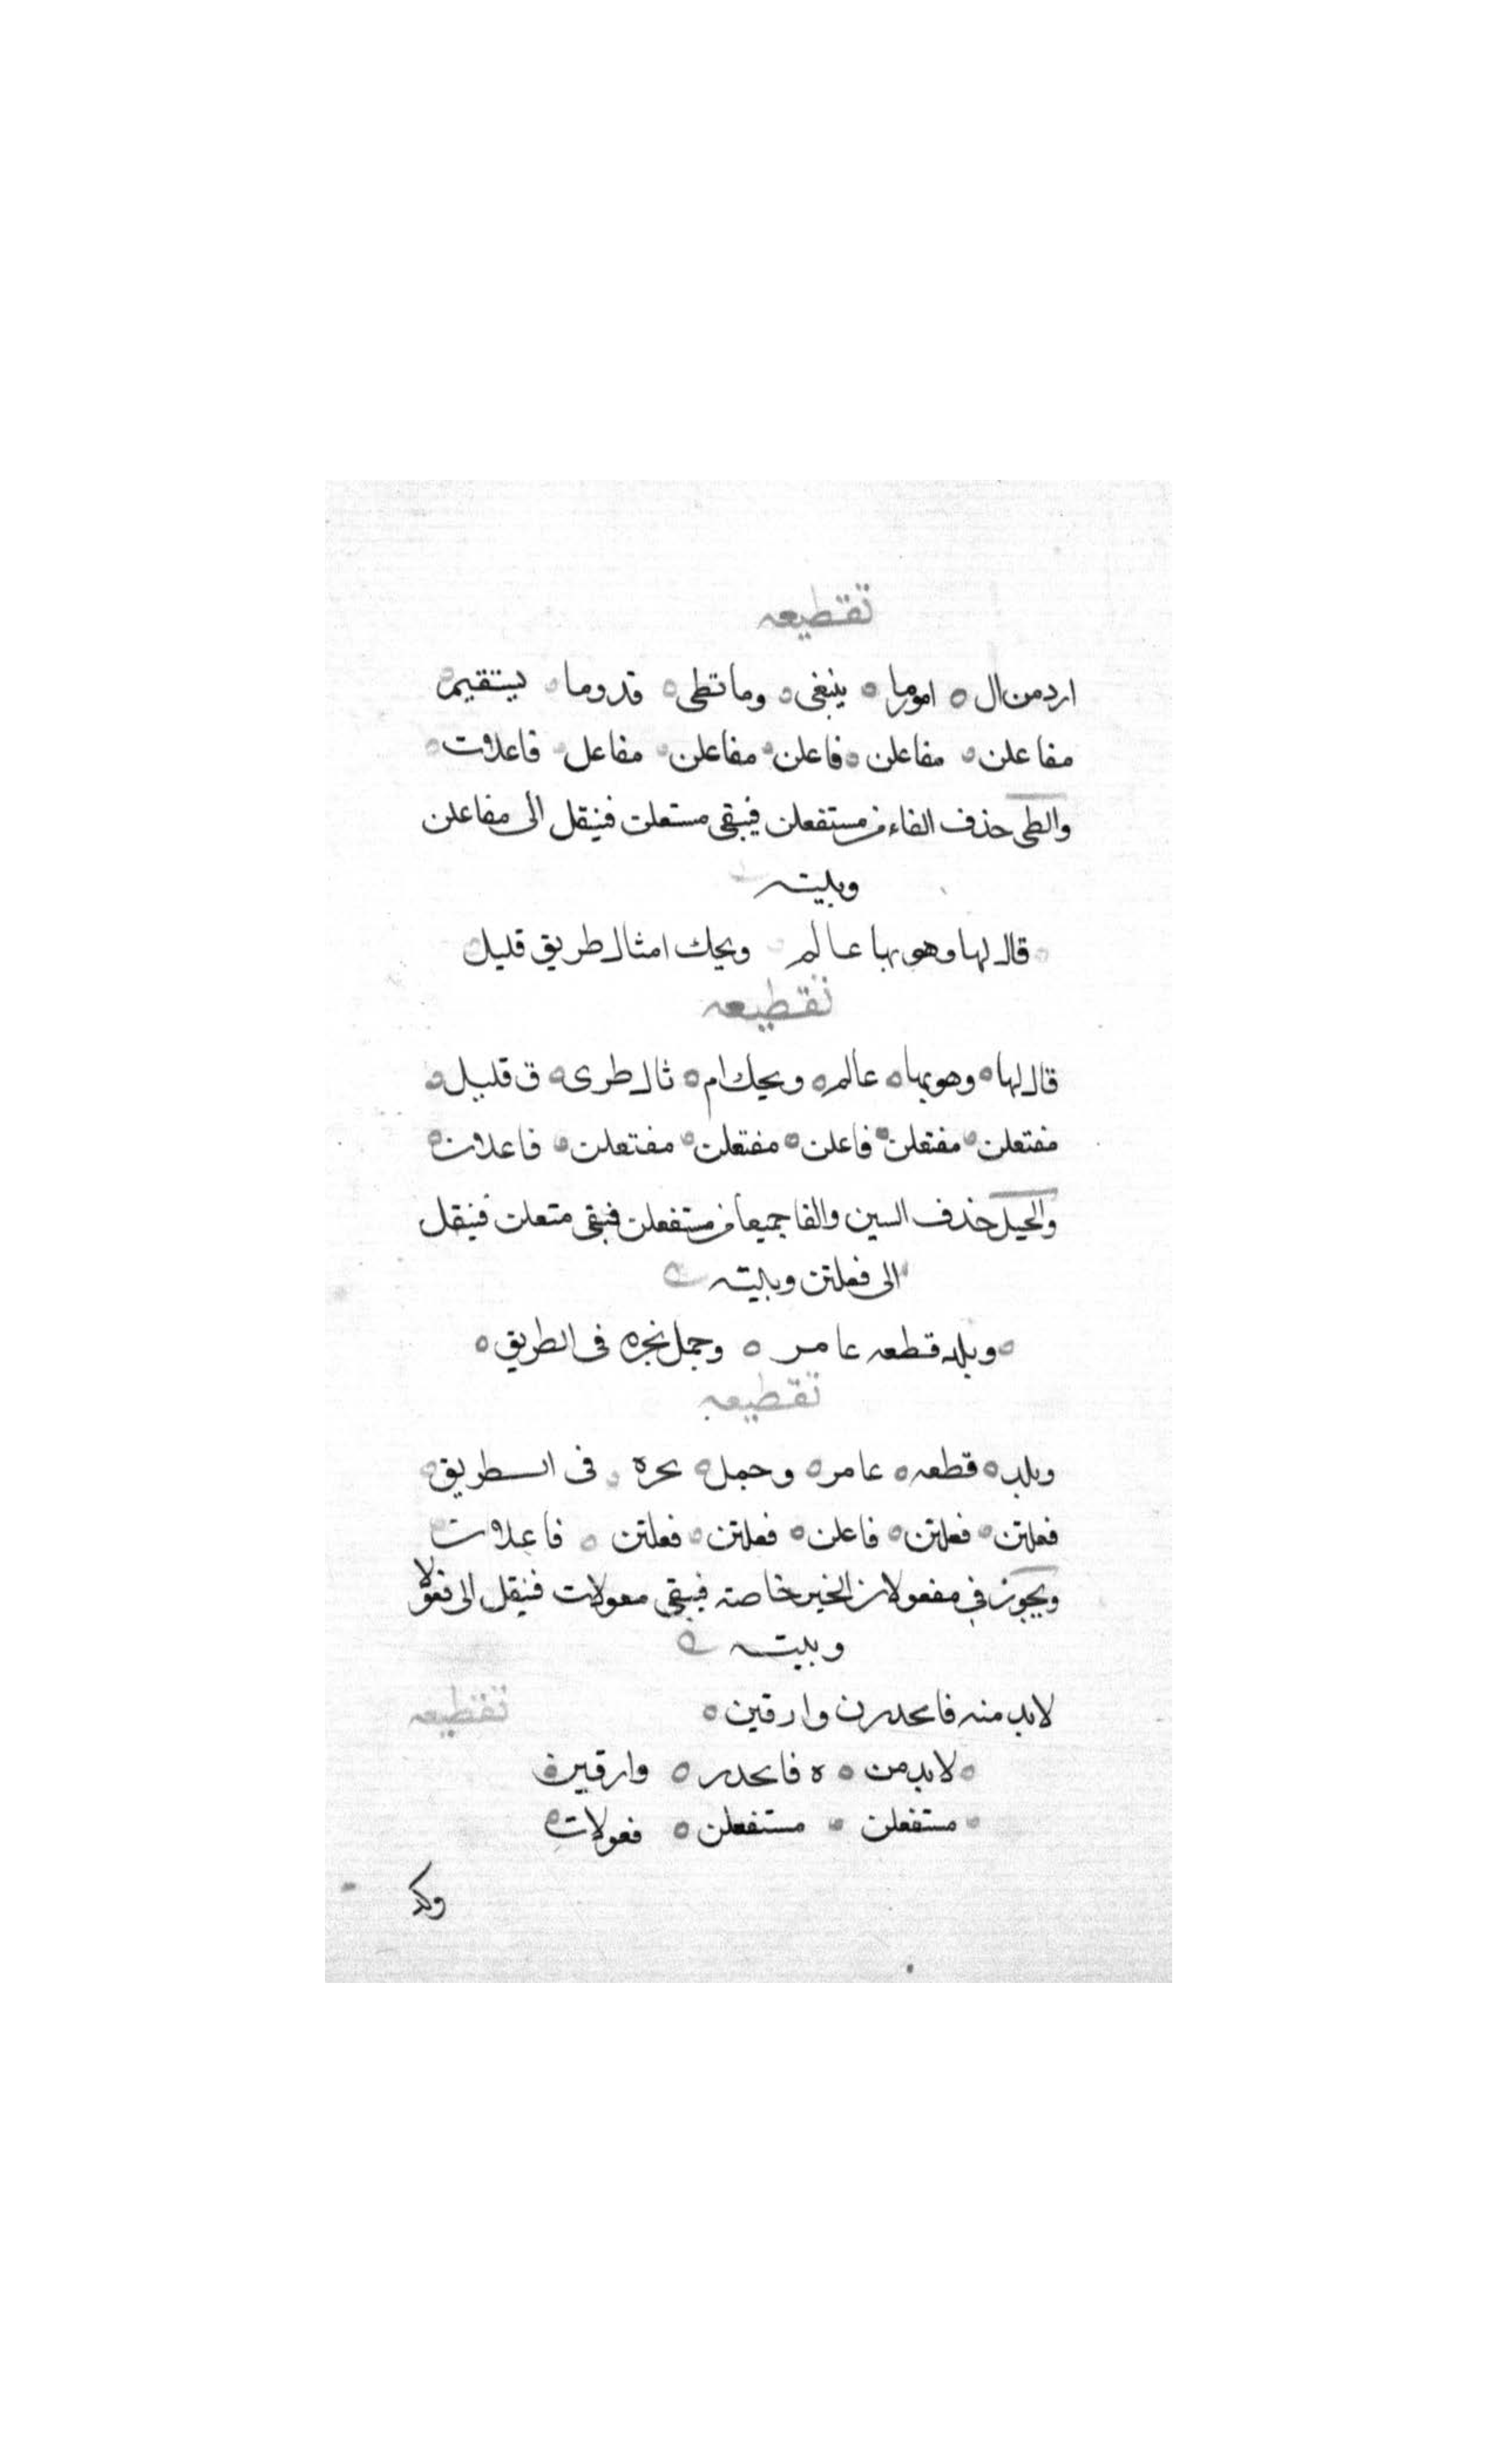 تقطيعه
اردمن ال ه امورما ه ينبغى ه وما تطى ه قدوما ه يستقيم ه
مفاعلن ه مفاعلن ه فاعلن ه مفاعلن ه مفاعل ه فاعلات ه
والطى حذف الفاء من مستفعلن فيبقى مستعلن فينقل الى مفاعلن
وبيته
ه قال لها وهو بها عالم ه ويحك امثال طريق قليل
تقطيعه
قال لها ه وهو بها ه عالم ه ويحك ام ه ثال طرى ه ق قليل ه
مفتعلن ه مفتعلن ه فاعلن ه مفتعلن ه مفتعلن ه فاعلات ه
والخبل حذف السين والفا جميعا من مستفعلن فيبقى متعلن فينقل
الى فعلتن وبيته ه
ه وبلد قطعه عامر ه وجمل نحره فى الطريق ه
تقطيعه
وبلد ه قطعه ه عامر ه وجمل ه نحره ه فى الطريق ه
فعلتن ه فعلتن ه فاعلن ه فعلتن ه فعلتن ه فاعلات ه
ويجوز فى مفعولان الخبن خاصة فيبقى معولات فينقل الى فعولا
وبيته ه
لابد منه فانحدرن وارقين ه تقطيعه
ه لابد من ه ه فانحدر ه وارقين ه
ه مستفعلن ه مستفعلن ه فعولات ه